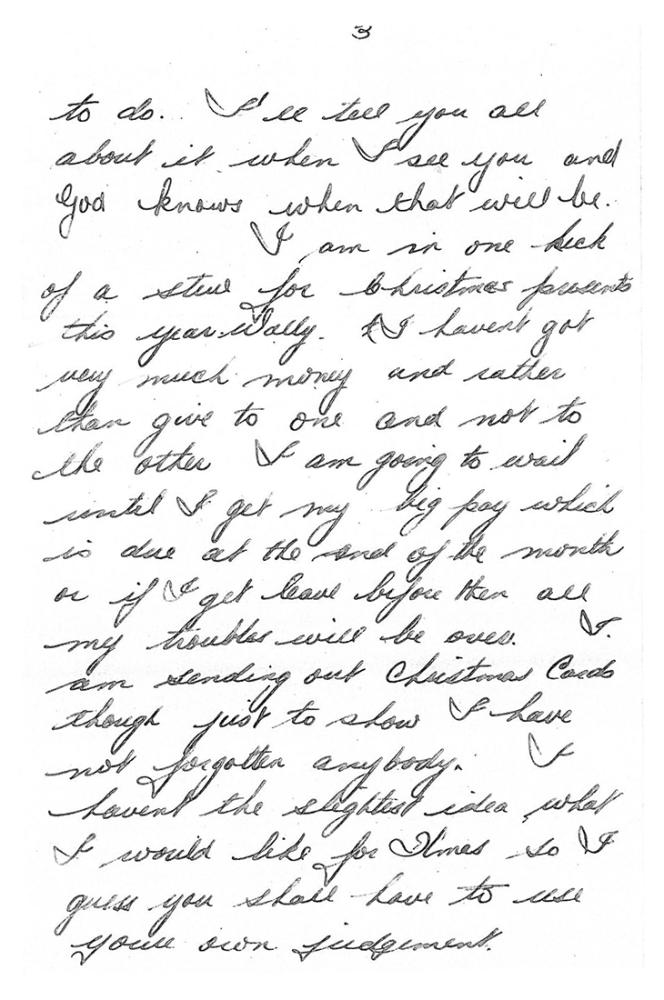 3
to do. I'll tell you all
about it when I see you and
God knows when that will be.
I am in one heck
of a stew for Christmas presents
this year Wally. I havent got
very much money and rather
than give to one and not to
the other I am going to wait
until I get my big pay which
is due at the end of the month
or if I get leave before then all
my troubles will be over. I.
am sending out Christmas Cards
though just to show I have
not forgotten anybody. I
havent the slightest idea what
I would like for Xmas so I
guess you shall have to use
your own judgement.